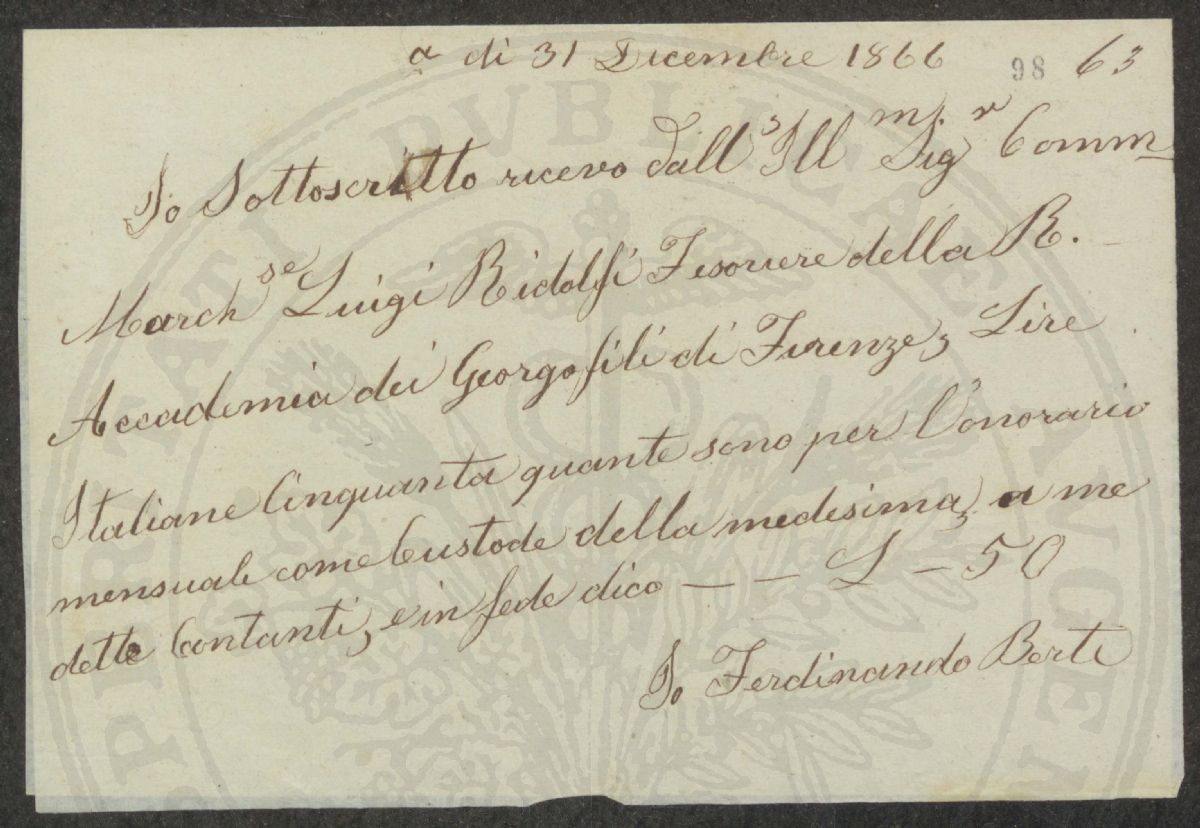 a di 31 Dicembre 1866 98 63
Io Sottoscritto ricevo dall'Ill.mo Sig.r Comm
March.se Luigi Ridolfi Tesoriere della R.
Accademia dei Georgofili di Firenze, Lire
Italiane Cinquanta quante sono per l'onorario
mensuale come Custode della medesima, a me
dette Contanti, e in fede dico — — L — 50
Io Ferdinando Berti
PROSPERITATI PVBLICAE AVGENDAE